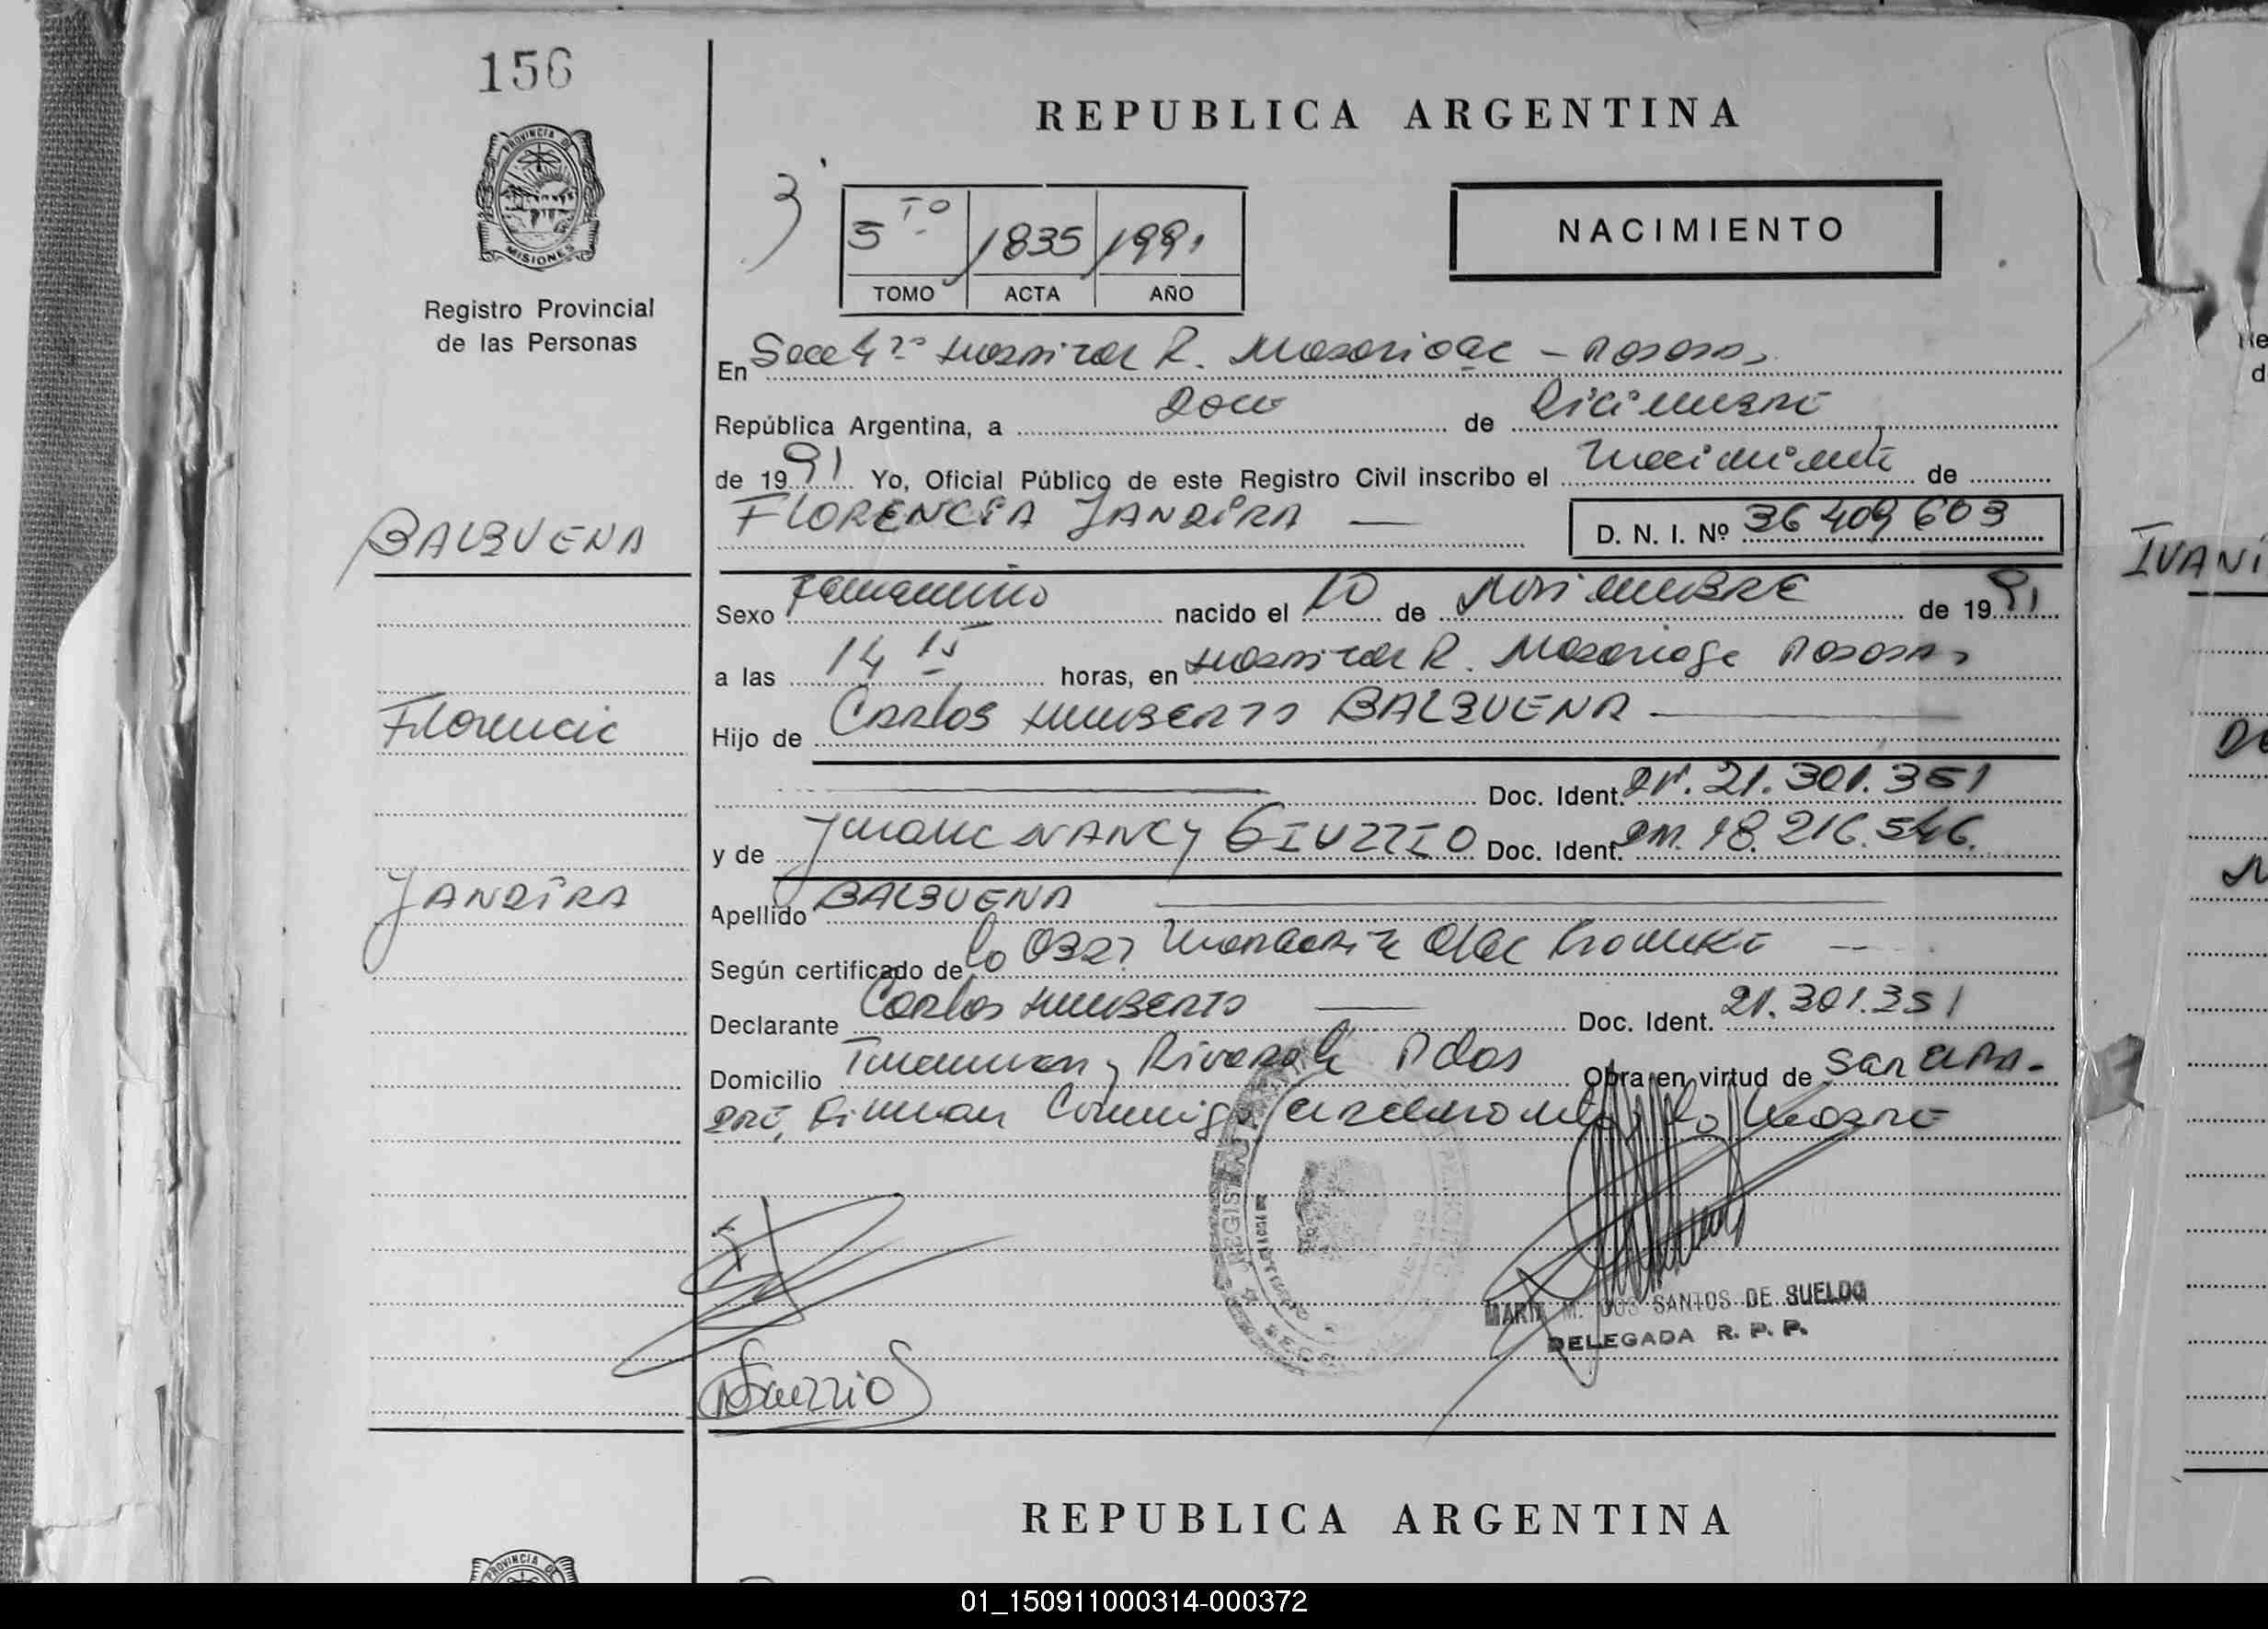 156
REPUBLICA ARGENTINA
PROVINCIA DE
MISIONES
Registro Provincial
de las Personas
3
5 TO 1835 1991
TOMO ACTA AÑO
NACIMIENTO
En Secc 4ta Hospital R. Madariaga - Posadas
República Argentina, a doce de Diciembre
de 1991 Yo, Oficial Público de este Registro Civil inscribo el nacimiento de
FLORENCIA JANDIRA
D. N. I. Nº 36 409 603
BALBUENA
Sexo Femenino nacido el 10 de Noviembre de 1991
a las 14 15 horas, en Hospital R. Madariaga Posadas
Florencia
Hijo de Carlos Humberto BALBUENA
Doc. Ident. 21.301.351
y de NANCY GIUZZIO Doc. Ident. 18.216.546.
JANDIRA
Apellido BALBUENA
Según certificado de la Obst
Declarante Carlos Humberto Doc. Ident. 21.301.351
Domicilio Tucuman y Rivadavia Pdas Obra en virtud de ser el pa-
dre, Firman Conmigo la Madre
MARIA M. DOS SANTOS DE SUELDO
DELEGADA R. P. P.
REPUBLICA ARGENTINA
PROVINCIA DE
01_150911000314-000372